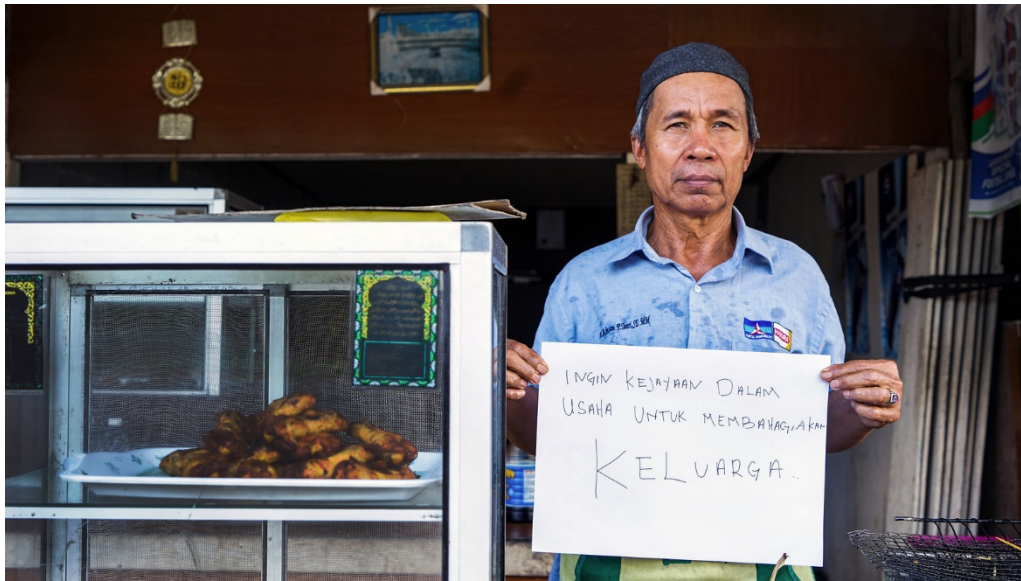 INGIN KEJAYAAN DALAM
USAHA UNTUK MEMBAHAGIAKAN
KELUARGA..